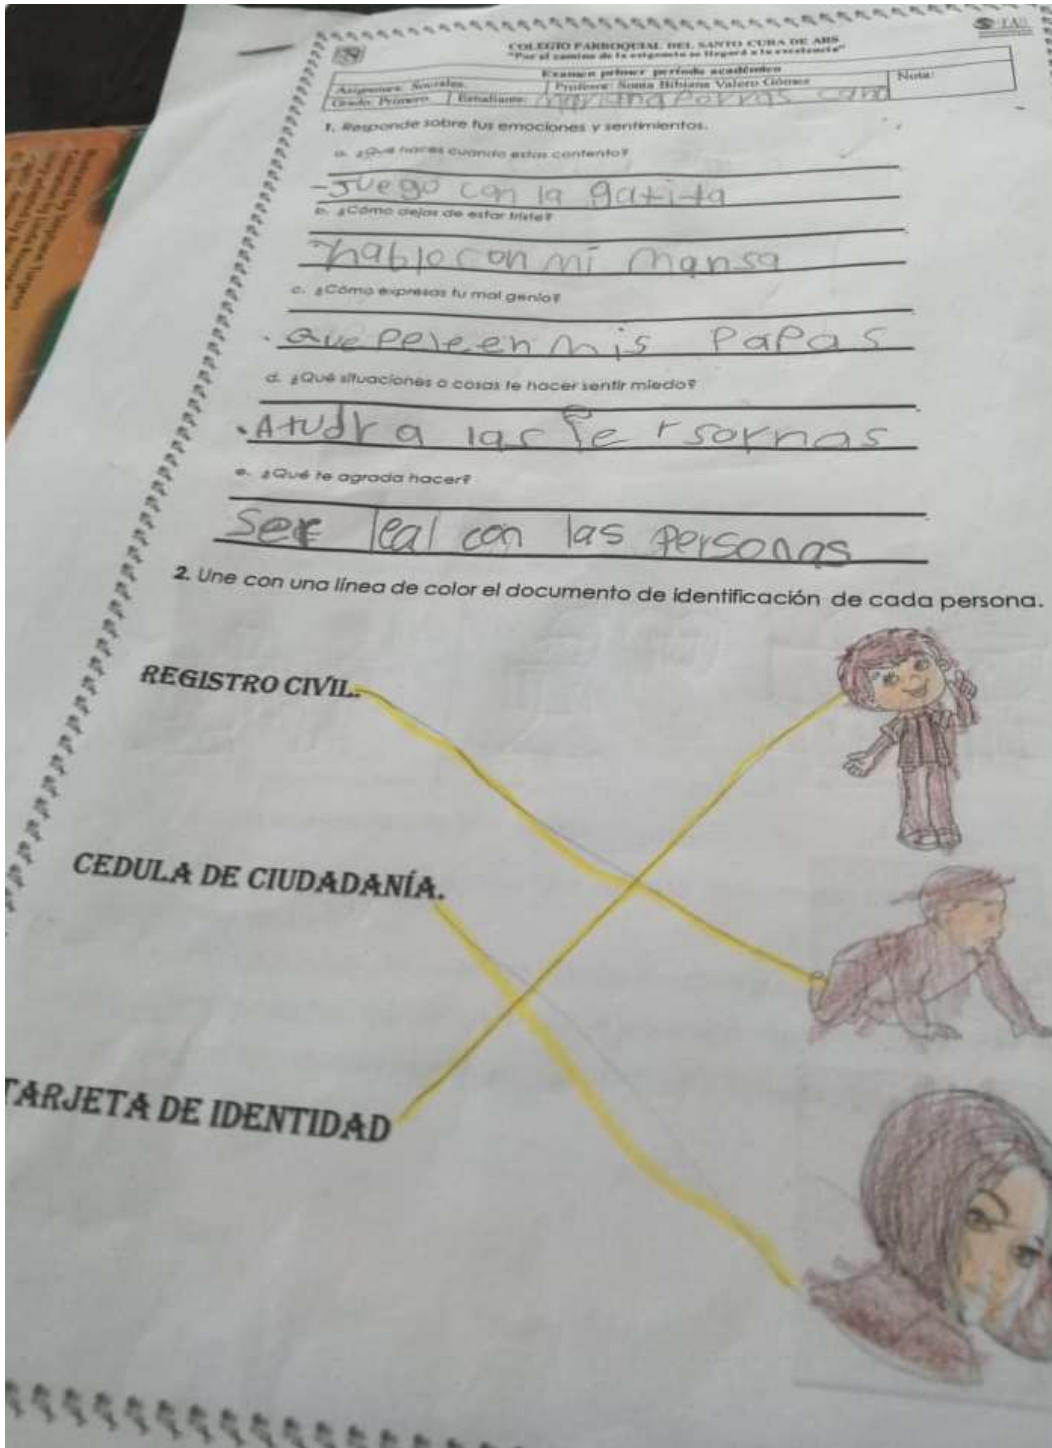 COLEGIO PARROQUIAL DEL SANTO CURA DE ARS
"Por el camino de la exigencia se llegará a la excelencia"
Examen primer período académico
Asignatura: Sociales. Profesora: Sonia Bibiana Valero Gómez Nota:
Grado: Primero Estudiante: Mariana Porras
1. Responde sobre tus emociones y sentimientos.
a. ¿Qué haces cuando estas contento?
-Juego con la gatita
b. ¿Cómo dejas de estar triste?
hablo con mi mansa
c. ¿Cómo expresas tu mal genio?
. Que peleen mis papas
d. ¿Qué situaciones o cosas te hacer sentir miedo?
las
e. ¿Qué te agrada hacer?
Ser leal con las personas
2. Une con una línea de color el documento de identificación de cada persona.
REGISTRO CIVIL.
CEDULA DE CIUDADANÍA.
TARJETA DE IDENTIDAD